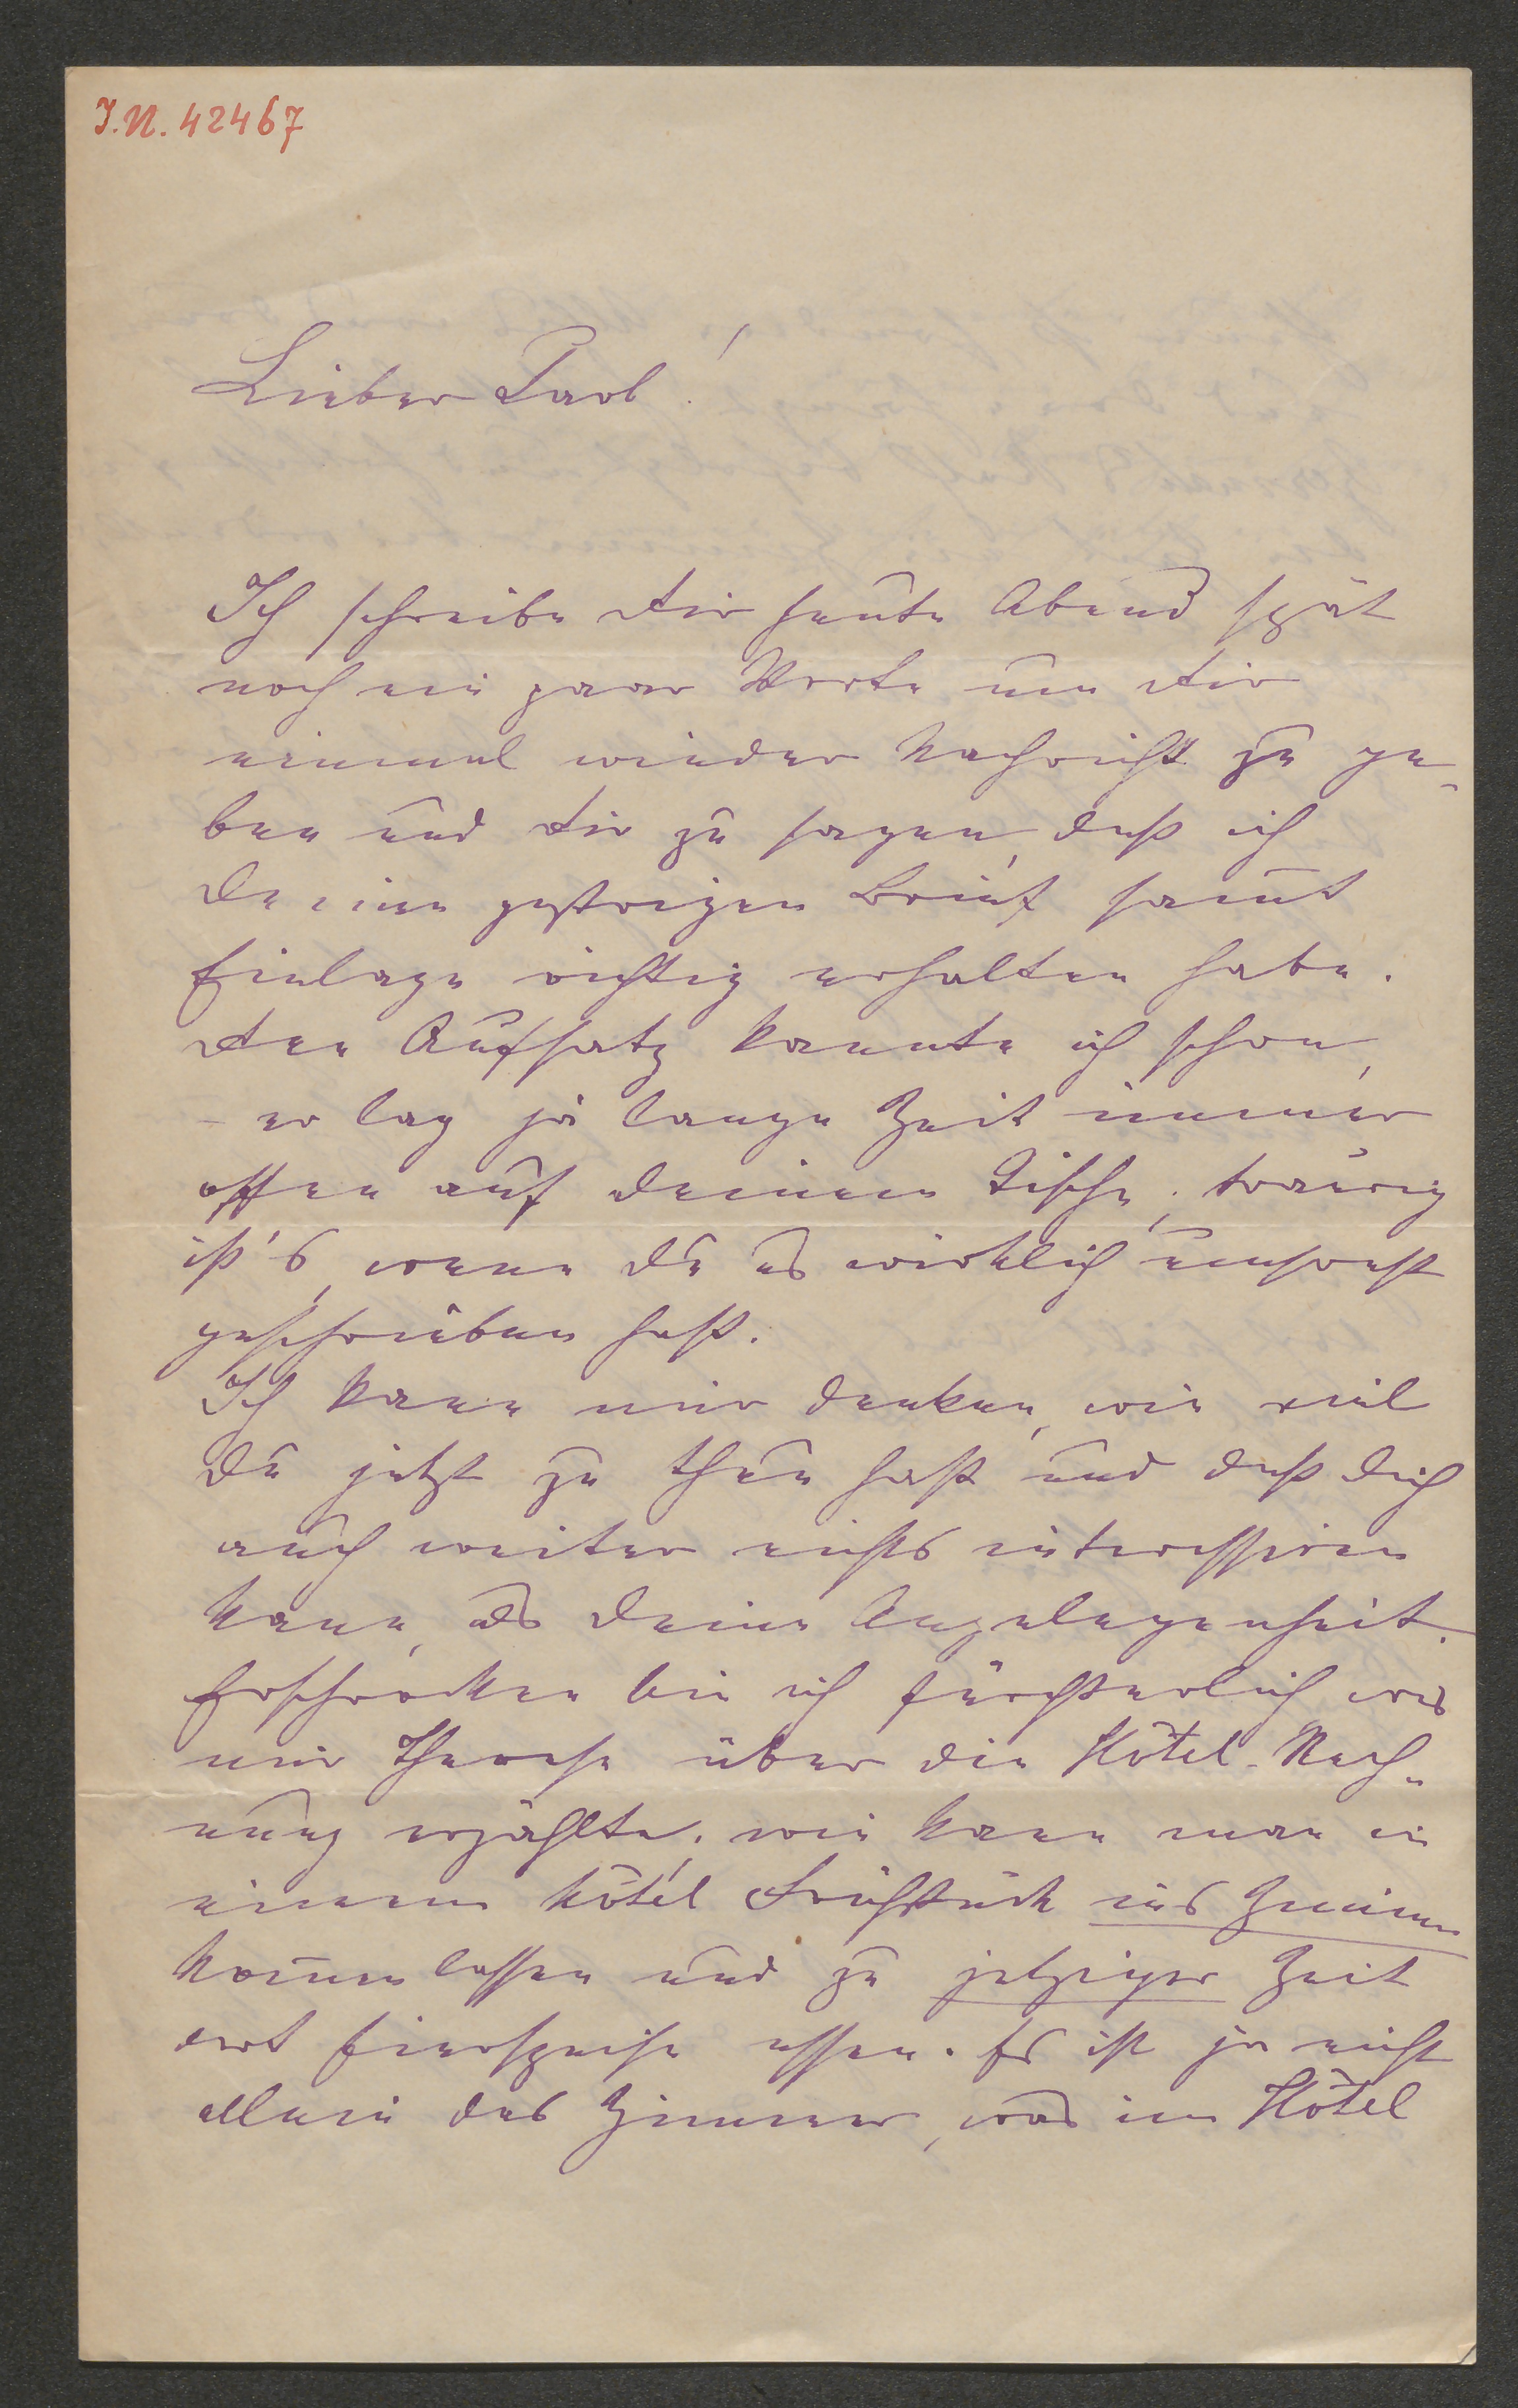 I.N. 42467
Lieber Carl!
Ich schreibe Dir heute Abend spät
noch ein paar Worte um Dir
einmal wieder Nachricht zu ge-
ben und Dir zu sagen, daß ich
Deinen gestrigen Brief sam̅t
Einlage richtig erhalten habe.
Den Aufsatz kannte ich schon,
- er lag ja lange Zeit immer
offen auf Deinem Tische; traurig
ist's, wenn Du es wirklich umsonst
geschrieben hast.
Ich kann mir denken, wie viel
Du jetzt zu thun hast und daß Dich
auch weiter nichts interessiren
kann, als Deine Angelegenheit.
Erschrocken bin ich fürchterlich was
mir Therese über die Hôtel-Rech-
nung erzählte; wie kann man in
einem Hôtel Frühstück ins Zimmer
kom̅en lassen und zu jetziger Zeit
dort Eierspeise essen. Es ist ja nicht
allein das Zimmer, was im Hôtel